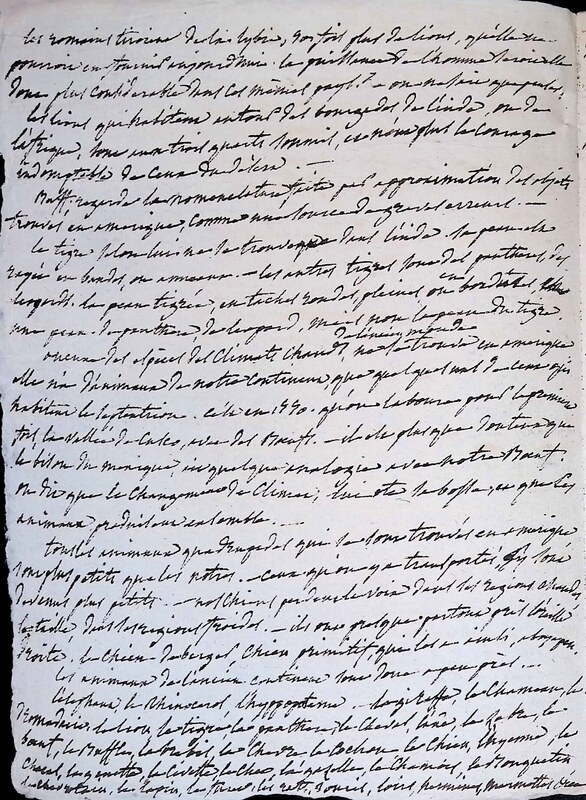 les romains tiroient de la lybie, 50 fois plus de lions, qu'elle ne
pourroit en fournir aujourdhui. la puissance de l'homme seroit elle
donc plus considerable dans ces mêmes pays? - on ne sait que penser
les lions qui habitent autour des bourgades de l'inde, ou de
l'afrique, sont aux trois quarts soumis, et n'ont plus le courage
indomptable de ceux du désert. -
Buff. regarde la nomenclature faite par approximation des objets
trouvés en amérique, comme une source de graves erreurs. -
le tigre selon lui ne se trouve que dans l'inde. sa peau est
rayée en bandes, ou anneaux. - les autres tigres sont des panthères, des
léopards. la peau tigrée, en taches rondes, pleines, ou en bordures,
une peau de panthère, de léopard, mais non la peau du tigre
de l'ancien monde
aucune des espèces des Climats chauds, ne se trouve en amérique
elle n'a d'animaux de notre continent que quelques uns de ceux qui
habitent le septentrion. ce fut en 1550. qu'on laboura pour la première
fois la vallée de Cusco, avec des Boeufs. - il est plus que douteux que
le bison du mexique, ait quelque analogie avec notre Boeuf.
on dit que le changement de Climat, lui ote la bosse, et que les
animaux produisent ensemble. -
tous les animaux quadrupedes qui se sont trouvés en amérique
sont plus petits que les notres. - ceux qu'on y a transportés y sont
devenus plus petits. - nos chiens perdent la voix dans les regions chaudes
la taille, dans les regions froides. - ils ont presque partout pris l'oreille
droite. le chien de berger, chien primitif, qui les a seuls,
les animaux de l'ancien continent sont donc a peu près. -
l'éléphant, le Rhinoceros, l'hyppopotame - la giraffe, le Chameau, le
dromadaire, le lion, le tigre, la panthère, le cheval, l'ane, le zebre, le
boeuf, le Buffle, la brebis, la Chevre, le Cochon, le Chien, l'hyenne, le
chacal, la genette, la civette, le chat, la gazelle, le Chamois, le Bouquetin
le chevrotain, le lapin, le furet, les rats, souris, loirs, hermines, marmottes